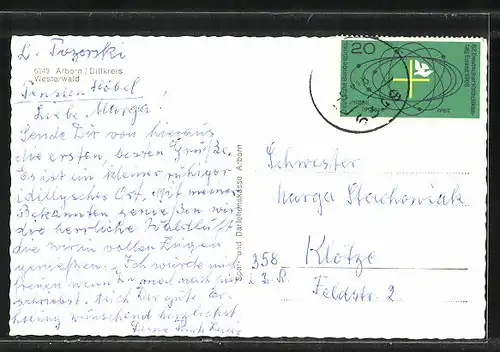 L. Tozerski
6349 Arborn/Dillkreis
Westerwald
Pension Höbel
Liebe Marga.
Sende Dir von hieraus
die ersten, besten Grüße.
Es ist ein kleiner ruhiger
idillyscher Ort. Mit meinen
Bekannten genießen wir
die herrliche Waldluft
die wir in vollen Zügen
genießen. Ich würde mich
freuen wenn Du mal nach
schreibst. Dich Dir gute Er-
holung wünschend herzlichst
Deine
Spar- und Darlehenskasse Arborn
20
Deutsche Bundespost
Schwester
Marga Stachowiak
358 Klötze
Feldstr. 2